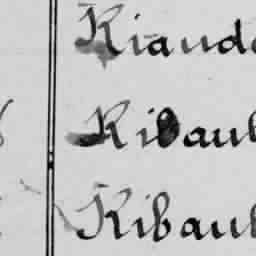 Riaud
Ribaul
Ribaul